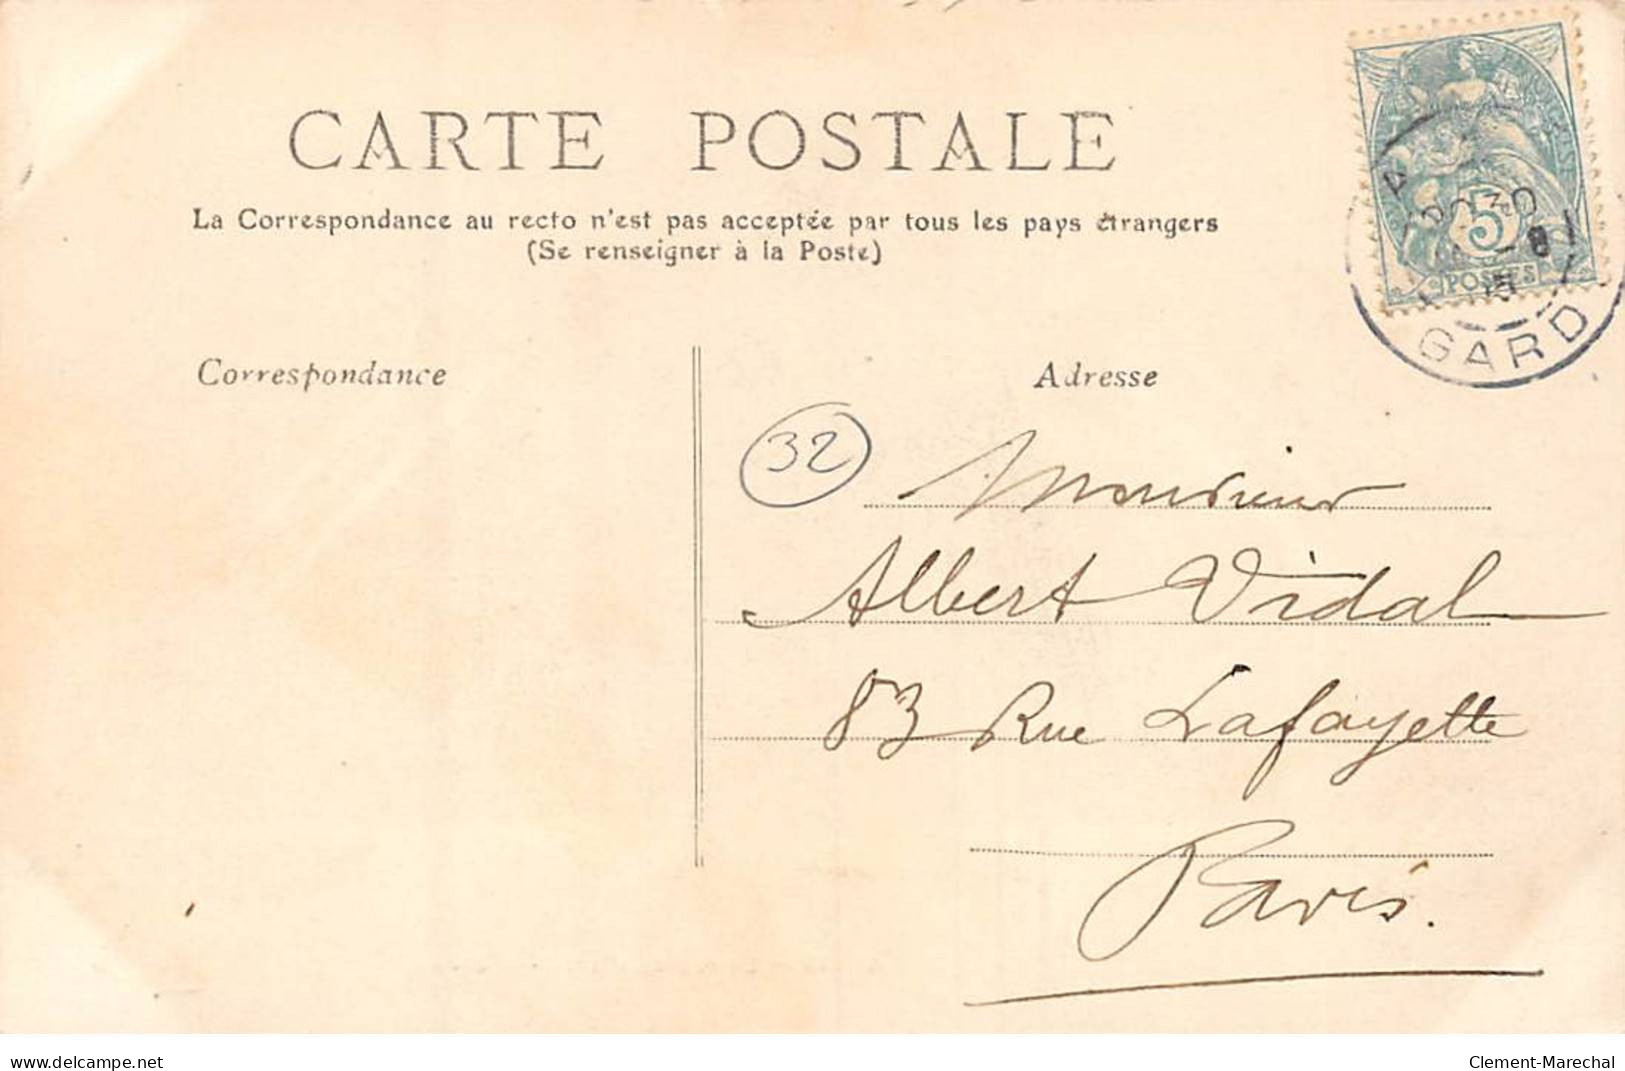 CARTE POSTALE
La Correspondance au recto n'est pas acceptée par tous les pays étrangers
(Se renseigner à la Poste)
5
POSTES
GARD
Correspondance
Adresse
32
Monsieur
Albert Vidal
83 Rue Lafayette
Paris.
delcampe.net
Clement-Marechal